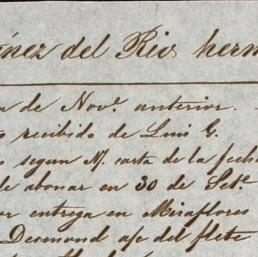 inez del Rio hern
a de Nov.º anterior.
o recibido de Luis G.
s segun N/ carta de la fech
de abonar en 30 de Set.º
or entrega en Miraflores
Desmond a/c del flete